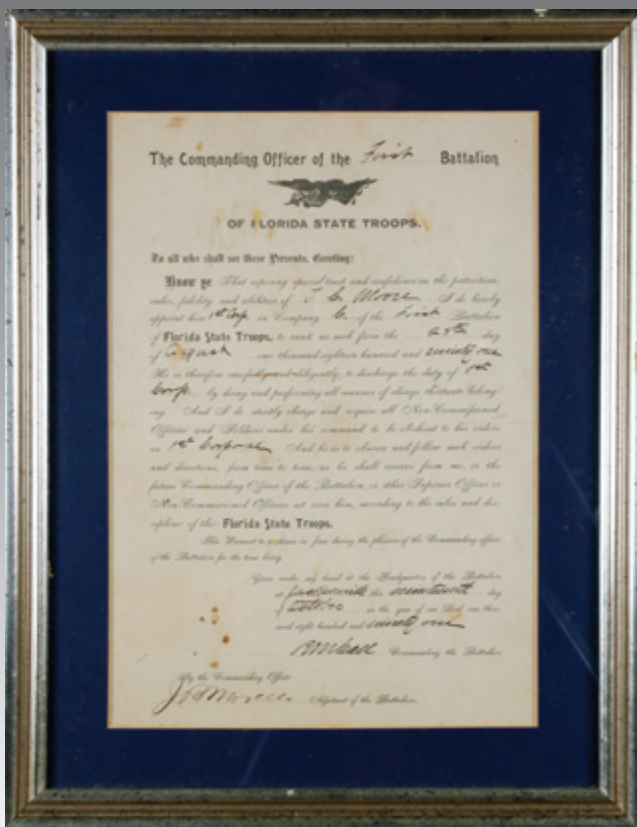 The Commanding Officer of the First Battalion
OF FLORIDA STATE TROOPS.
To all who shall see these Presents, Greeting:
Know ye That reposing special trust and confidence in the patriotism,
valor, fidelity and abilities of T. C. Moore I do hereby
appoint him 1st Corp in Company C. of the First Battalion
of Florida State Troops, to rank as such from the 25th day
of August one thousand eighteen hundred and ninety one
He is therefore carefully and diligently, to discharge the duty of 1st
Corp. by doing and performing all manner of things thereunto belong-
ing. And I do strictly charge and require all Non-Commissioned
Officers and Soldiers under his command to be obedient to his orders
as 1st Corporal And he is to observe and follow such orders
and directions, from time to time, as he shall receive from me, or the
future Commanding Officer of the Battalion, or other Superior Officers or
Non-Commissioned Officers set over him, according to the rules and dis-
cipline of the Florida State Troops.
This Warrant to continue in force during the pleasure of the Commanding officer
of the Battalion for the time being
Given under my hand at the Headquarters of the Battalion
at Jacksonville this nineteenth day
of October in the year of our Lord one thou-
sand eight hundred and ninety one
Commanding the Battalion
By the Commanding Officer
Adjutant of the Battalion.